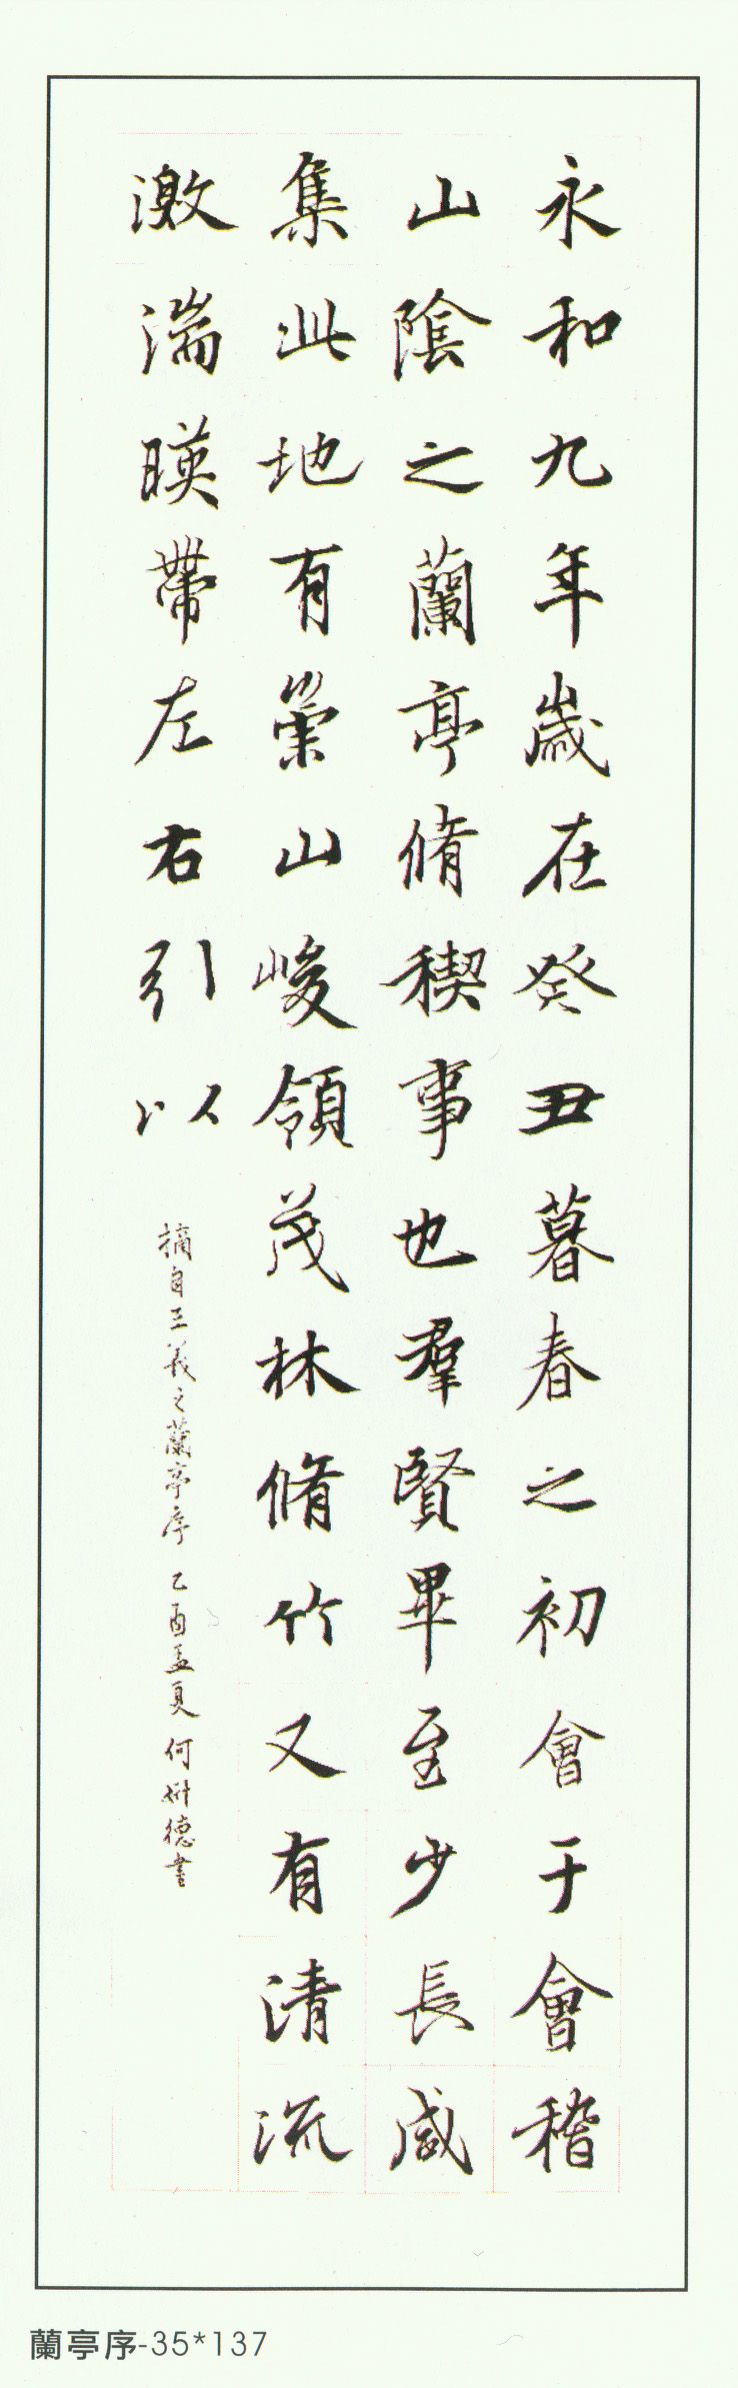 永和九年歲在癸丑暮春之初會于會稽
山陰之蘭亭脩稧事也羣賢畢至少長咸
集此地有崇山峻領茂林脩竹又有清流
激湍暎帶左右引以
摘自王羲之蘭亭序 乙酉孟夏 何德書
蘭亭序-35*137